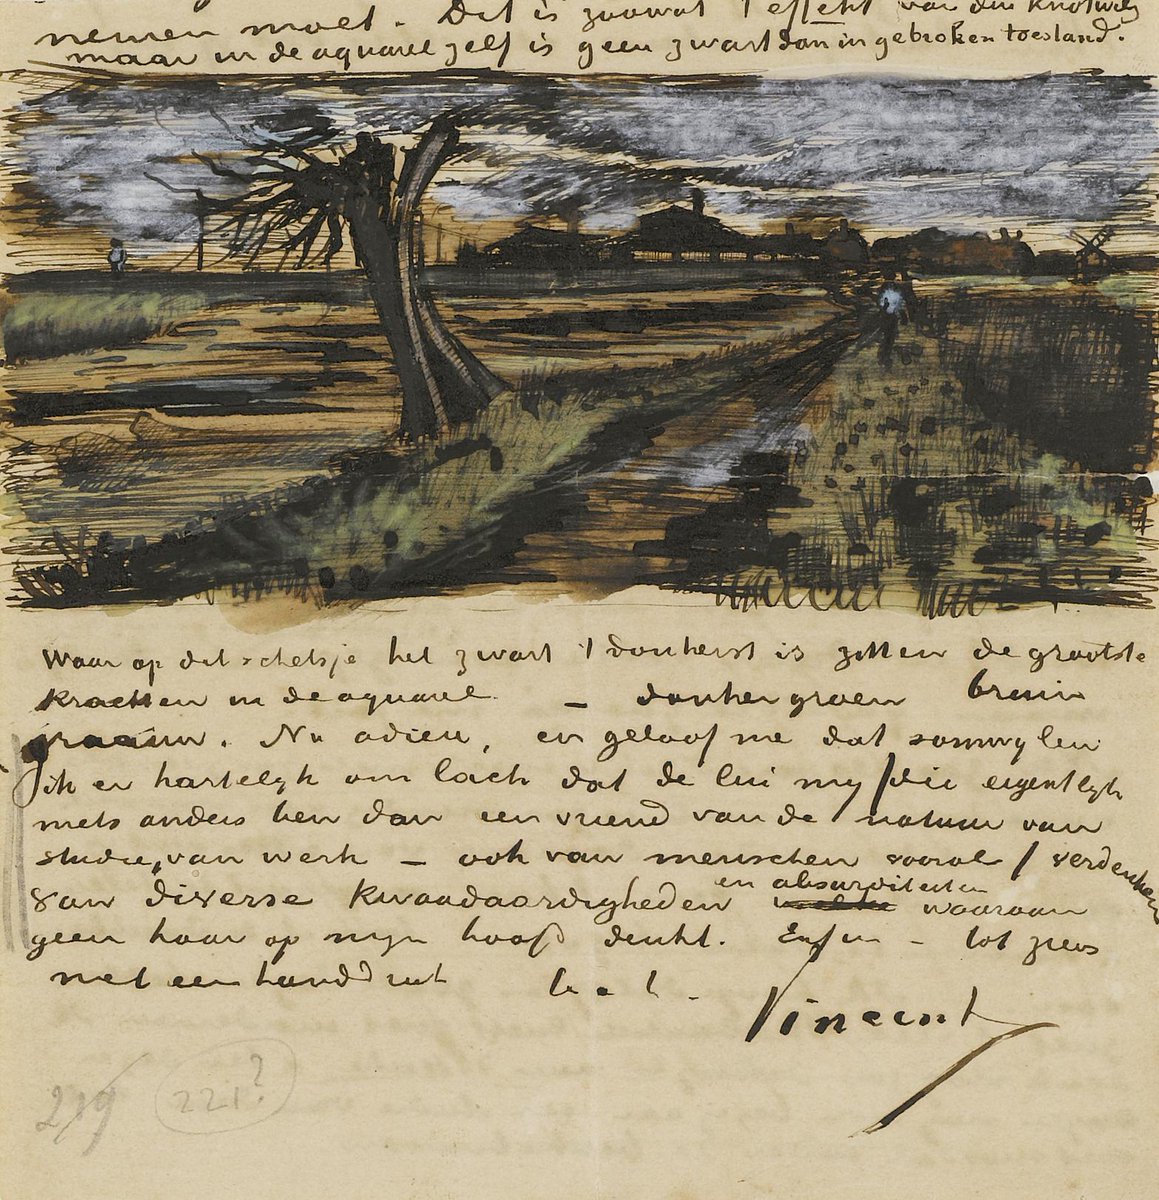 nemen moet. Dit is zoowat 't effekt van den knotwilg
maar in de aquarel zelf is geen zwart dan in gebroken toestand.
Waar op dit schetsje het zwart 't donkerst is zitten de grootste
krachten in de aquarel – donkergroen bruin
graauw. Nu adieu, en geloof me dat somwylen
ik er hartelyk om lach dat de lui my /die eigentlyk
niets anders ben dan een vriend van de natuur van
studie, van werk – ook van menschen vooral / verdenken
van diverse kwaadaardigheden en absurditeiten waaraan
geen haar op myn hoofd denkt. Enfin – tot ziens
met een handdruk t. à t.
Vincent
219 221?